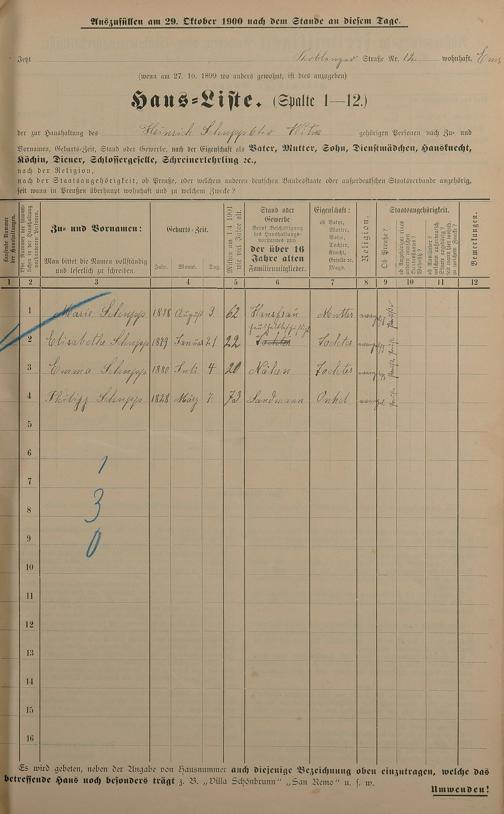 Auszufüllen am 29. Oktober 1900 nach dem Stande an diesem Tage.
Jetzt Coblenzer Straße Nr. 12 wohnhaft. Ems
(wenn am 27. 10. 1899 wo anders gewohnt, ist dies anzugeben)
Haus-Liste. (Spalte 1—12.)
der zur Haushaltung des Heinrich Schupp gehörigen Personen nach Zu- und
Vornamen, Geburts-Zeit, Stand oder Gewerbe, nach der Eigenschaft als Vater, Mutter, Sohn, Dienstmädchen, Hausknecht,
Köchin, Diener, Schlossergeselle, Schreinerlehrling ec.,
nach der Religion,
nach der Staatsangehörigkeit, ob Preuße, oder welchem anderen deutschen Bundesstaate oder außerdeutschen Staatsverbande angehörig,
seit wann in Preußen überhaupt wohnhaft und zu welchem Zwecke?
Zu- und Vornamen:
Man bittet die Namen vollständig und leserlich zu schreiben.
Geburts-Zeit.
Jahr. Monat. Tag.
Mithin am 1/4 1901 wie viel Jahre alt.
Stand oder Gewerbe
der über 16 Jahre alten Familienmitglieder.
Eigenschaft:
ob Vater, Mutter, Sohn, Tochter, Knecht, Geselle, Magd.
Religion.
Staatsangehörigkeit.
Ob Preuße?
Bemerkungen.
1 2 3 4 5 6 7 8 9 10 11 12
1 Marie Schupp 1838 August 3 62 Hausfrau Mutter
2 Elisabethe Schupp 1879 Januar 21 22 Tochter Tochter
3 Emma Schupp 1880 Juli 4 20 Nähen Tochter
4 Philipp Schupp 1828 März 7 73 Landmann Onkel
5
6
1
7
3
8
9
0
10
11
12
13
14
15
16
Es wird gebeten, neben der Angabe von Hausnummer auch diejenige Bezeichnung oben einzutragen, welche das
betreffende Haus noch besonders trägt z. B. „Villa Schönbrunn" „San Remo" u. s. w.
Umwenden!